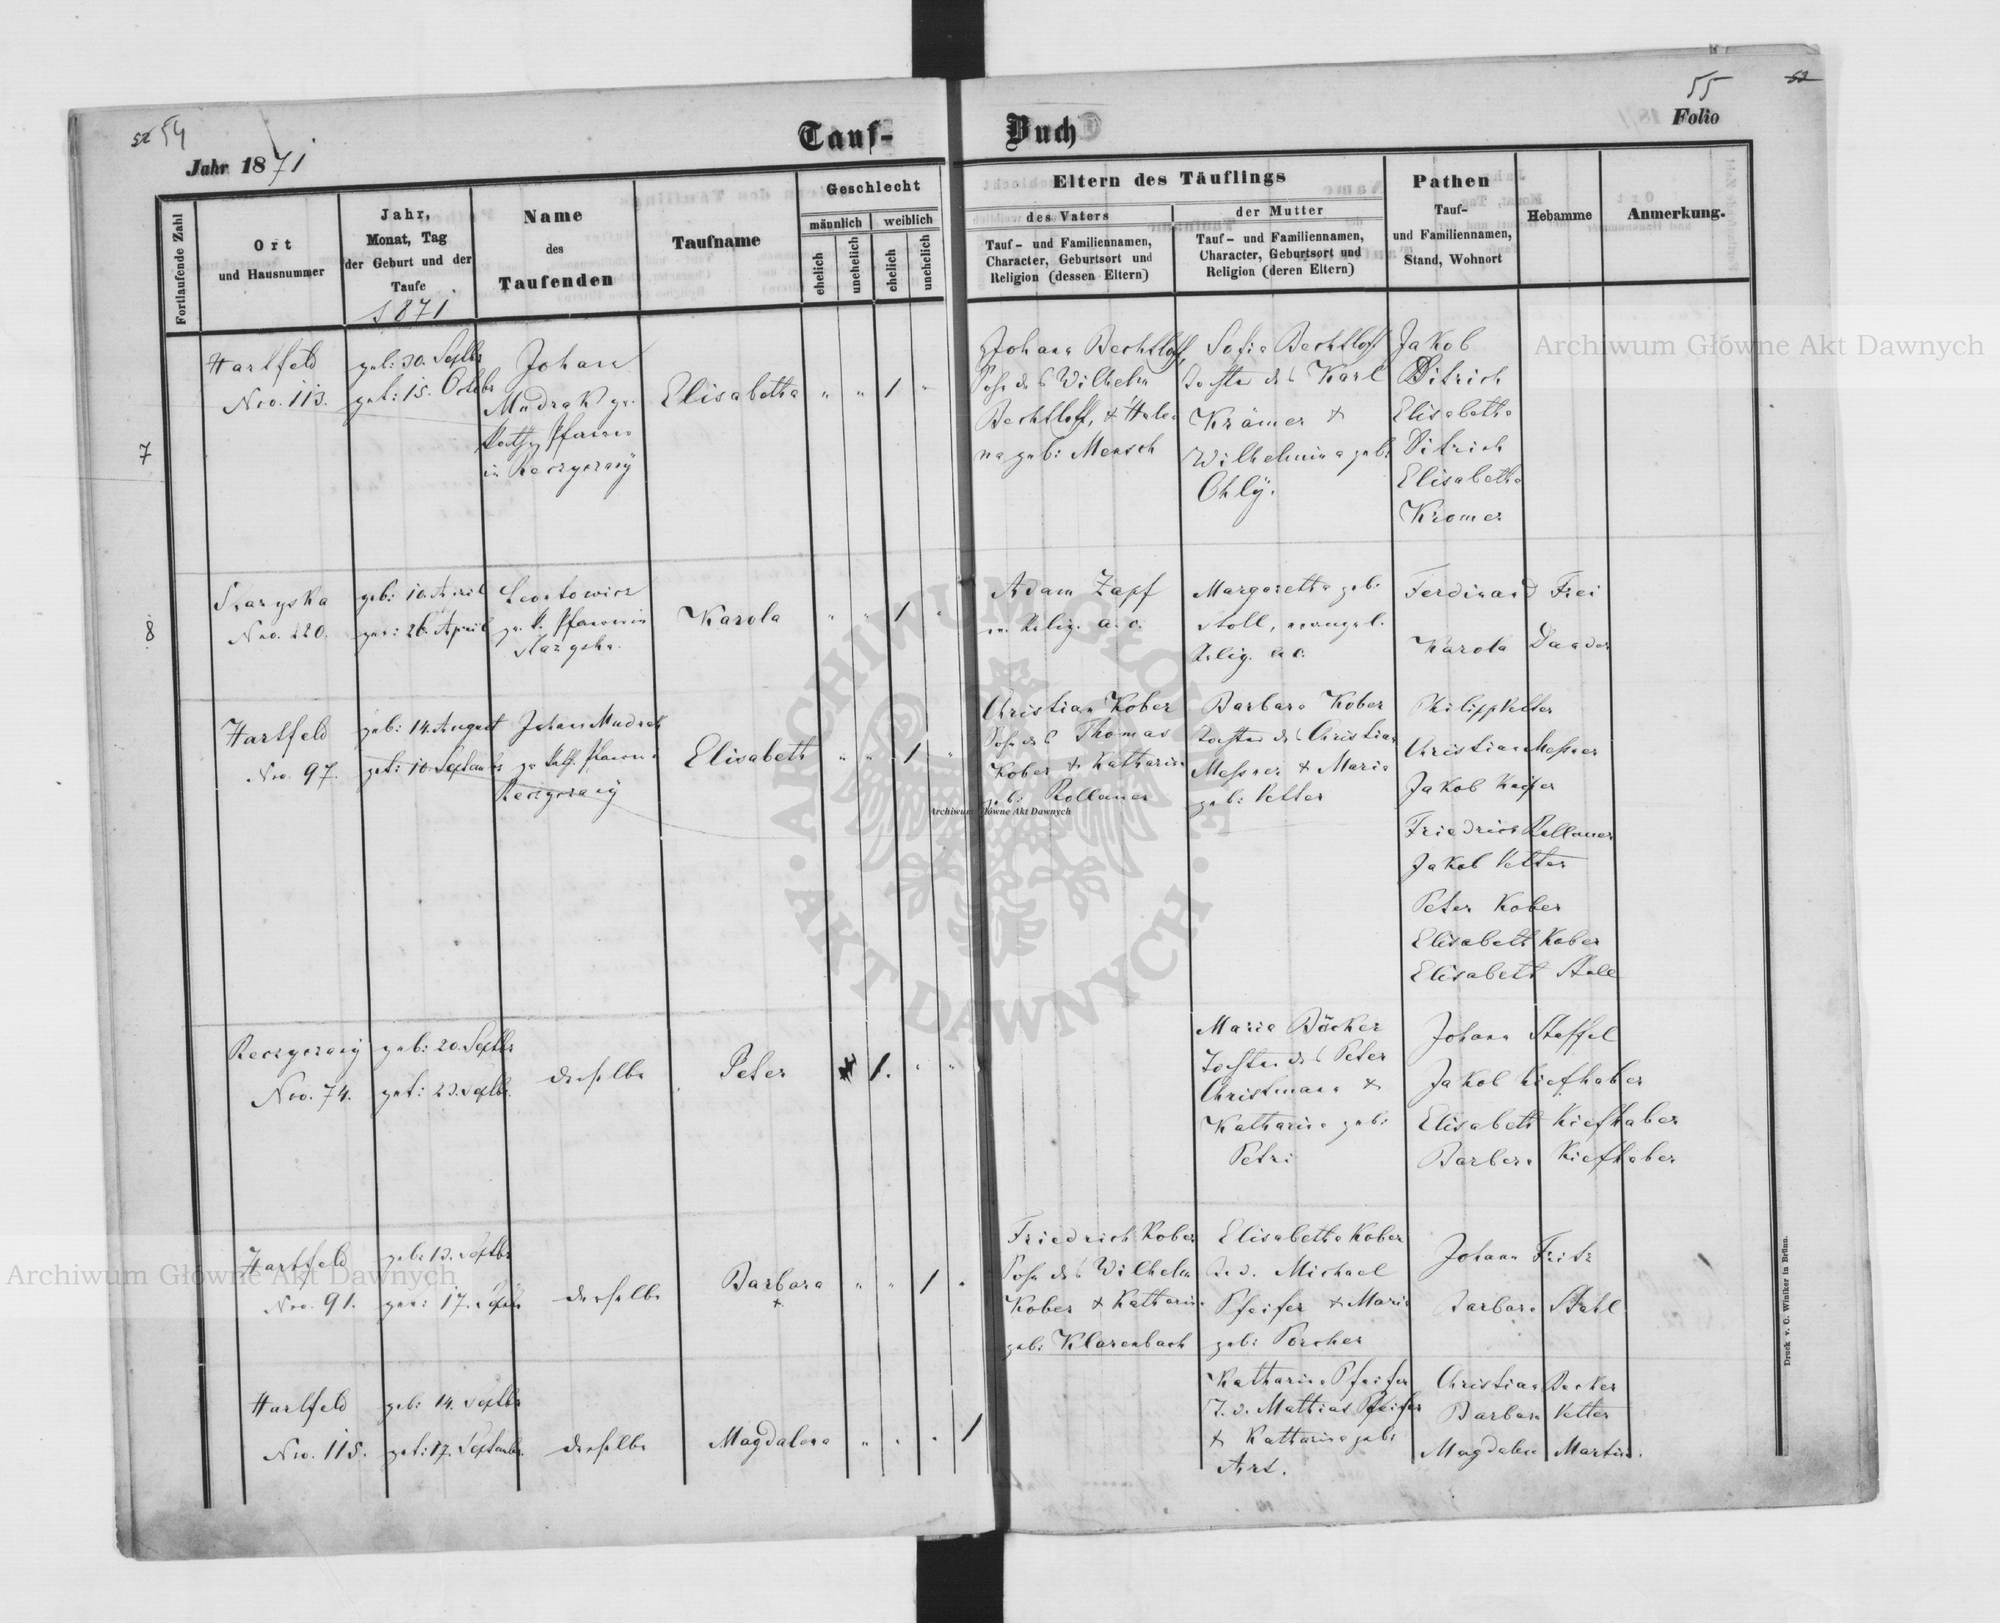 52 54
Jahr 1871
Tauf-
Fortlaufende Zahl
Ort
und Hausnummer
Jahr,
Monat, Tag
der Geburt und der
Taufe
1871
Name
des
Taufenden
Taufname
Geschlecht
männlich
weiblich
ehelich
unehelich
ehelich
unehelich
7
Hartfeld
Nro. 113.
geb: 30. Septbr
get: 15. Octobr
Johann
Mudrak gr.
Kath. Pfarrer
in Reczyczany
Elisabetha
" " 1 "
8
Nro. 220.
geb: 10. April
get: 26. April
Leontowicz
Karola
" " 1 "
Hartfeld
Nro. 97.
geb: 14. August
get: 10. Septembr
Johann Mudrak
Reczyczany
Elisabeth
" " 1 "
Reczyczany
Nro. 74.
geb: 20. Septbr
get: 23. Septbr.
derselbe
Peter
1. " "
Hartfeld
Nro. 91.
geb: 13. Septbr
get: 17. Septbr
derselbe
Barbara
+
" " 1 "
Hartfeld
Nro. 115.
geb: 14. Septbr
get: 17. September
derselbe
Magdalena
" " " 1
55
52
Folio
Buch
Eltern des Täuflings
des Vaters
Tauf- und Familiennamen,
Character, Geburtsort und
Religion (dessen Eltern)
der Mutter
Tauf- und Familiennamen,
Character, Geburtsort und
Religion (deren Eltern)
Pathen
Tauf-
und Familiennamen,
Stand, Wohnort
Hebamme
Anmerkung.
Johann Bechtloff,
Sohn des Wilhelm
Bechtloff, & Hele
na geb: Mensch
Sofia Bechtloff
Tochter des Karl
Krämer &
Wilhelmina geb:
Ohly.
Jakob
Ditrich
Elisabetha
Ditrich
Elisabetha
Kromer
Adam Zapf
ev. Relig. a. c.
Margaretha geb:
Stoll, evangel.
Relig. a c.
Ferdinand Frei
Karola Daader
Christian Kober
Sohn des Thomas
Kober & Katharina
geb: Rollauer
Barbara Kober
Tochter des Christian
Messner & Maria
geb: Vetter
Philipp Vetter
Christian Messner
Jakob Keiper
Friedrich Rollauer
Jakob Vetter
Peter Kober
Elisabeth Kober
Elisabeth Stall
Maria Bäcker
Tochter des Peter
Christmann &
Katharina geb:
Petri
Johann Steffel
Jakob Kiefhaber
Elisabeth Kiefhaber
Barbara Kiefhaber
Friedrich Kober
Sohn des Wilhelm
Kober & Katharina
geb: Klarenbach
Elisabetha Kober
T. d. Michael
Pfeifer & Maria
geb: Porcher
Johann Fritz
Barbara Stahl
Katharina Pfeifer
T. d. Mathias Pfeifer
& Katharina geb:
Art.
Christian Becker
Barbara Vetter
Magdalena Martin.
Druck v. C. Winiker in Brünn.
Archiwum Główne Akt Dawnych
Archiwum Główne Akt Dawnych
Archiwum Główne Akt Dawnych
ARCHIWUM GŁÓWNE
· AKT DAWNYCH ·